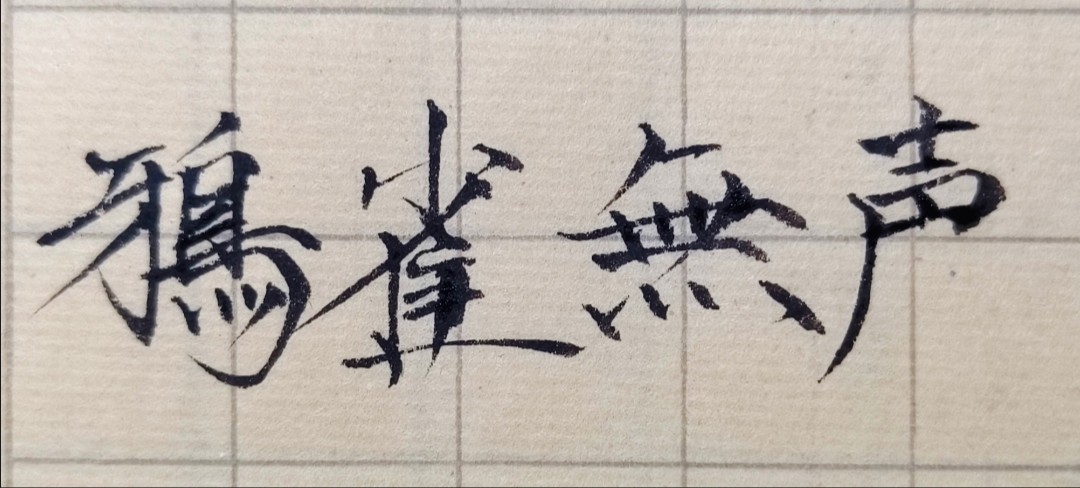 鴉雀無声